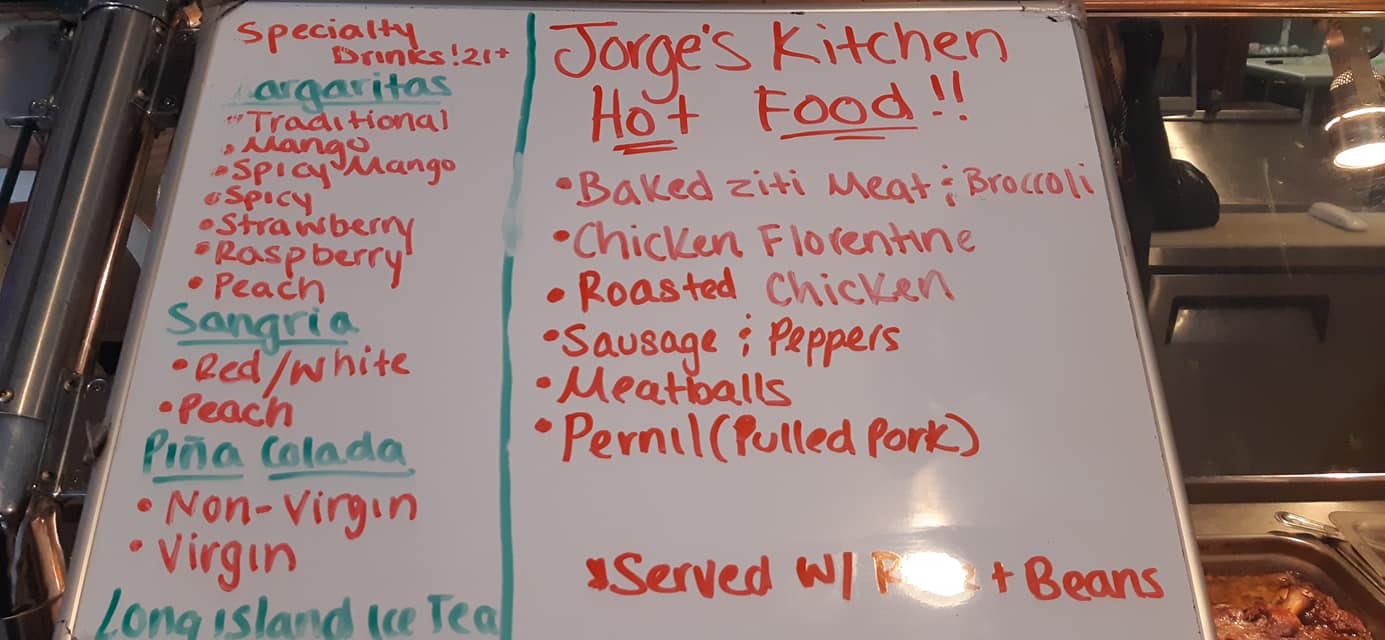 Specialty
Drinks! 21+
argaritas
Traditional
Mango
Spicy Mango
Spicy
Strawberry
Raspberry
Peach
Sangria
Red/White
Peach
Piña Colada
Non-Virgin
Virgin
Long island Ice Tea
Jorge's Kitchen
Hot Food!!
Baked ziti Meat & Broccoli
Chicken Florentine
Roasted Chicken
Sausage & Peppers
Meatballs
Pernil (Pulled Pork)
*Served W/ + Beans